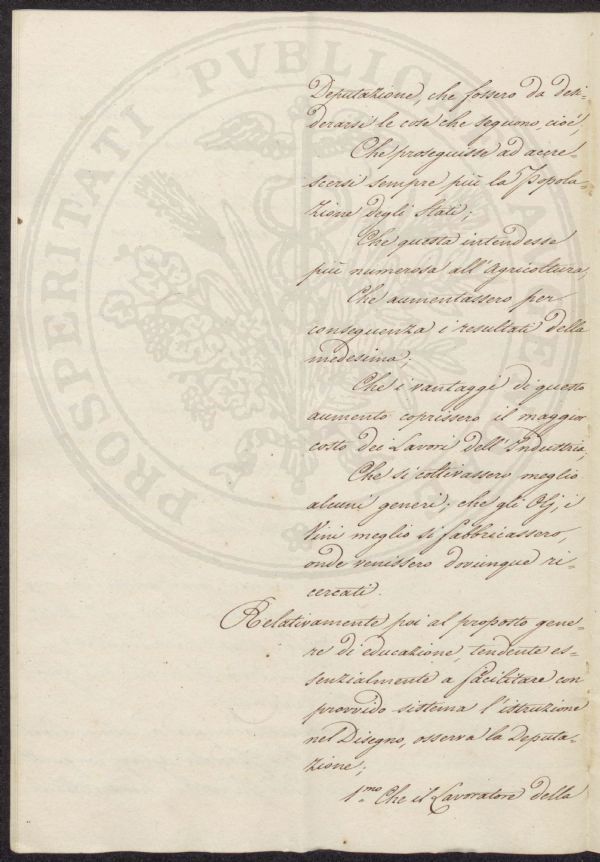 PROSPERITATI PVBLICAE
Deputazione, che fossero da desi-
derarsi le cose che seguono, cioè,
Che proseguisse ad accre-
scersi sempre più la Popola-
zione degli Stati;
Che questa intendesse
più numerosa all'Agricoltura,
Che aumentassero per
conseguenza i resultati della
medesima;
Che i vantaggi di questo
aumento coprissero il maggior
costo dei Lavori dell'Industria,
Che si coltivassero meglio
alcuni generi; che gli Olj, i
Vini meglio si fabbricassero,
onde venissero dovunque ri-
cercati.
Relativamente poi al proposto gene-
re di educazione, tendente es-
senzialmente a facilitare con
provvido sistema l'istruzione
nel Disegno, osserva la Deputa-
zione;
1.mo Che il Lavoratore della